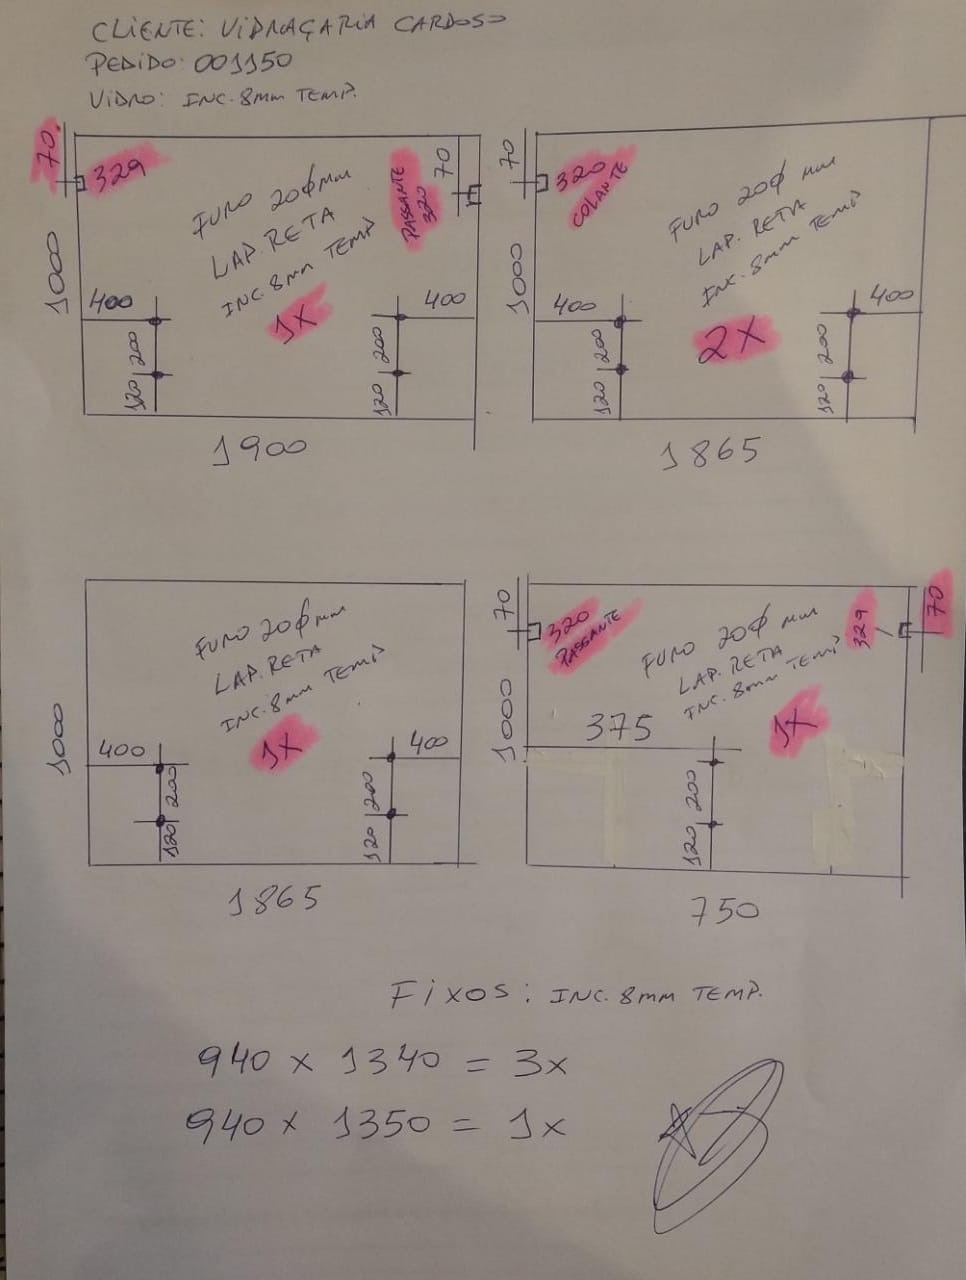 CLIENTE: VIDRAÇARIA CARDOSO
PEDIDO: 001150
VIDRO: INC. 8mm TEMP.
70
329
FURO 20ϕ mm
LAP. RETA
INC. 8mm TEMP
1X
PASSANTE
320
70
1000
400
200
120
400
200
120
1900
70
320
COLANTE
FURO 20ϕ mm
LAP. RETA
INC. 8mm TEMP
2X
1000
400
200
120
400
200
120
1865
FURO 20ϕ mm
LAP. RETA
INC. 8mm TEMP
1X
1000
400
200
120
400
200
120
1865
70
320
PASSANTE
FURO 20ϕ mm
LAP. RETA
INC. 8mm TEMP
1X
329
70
1000
375
200
120
750
FIXOS: INC. 8mm TEMP.
940 x 1340 = 3x
940 x 1350 = 1x